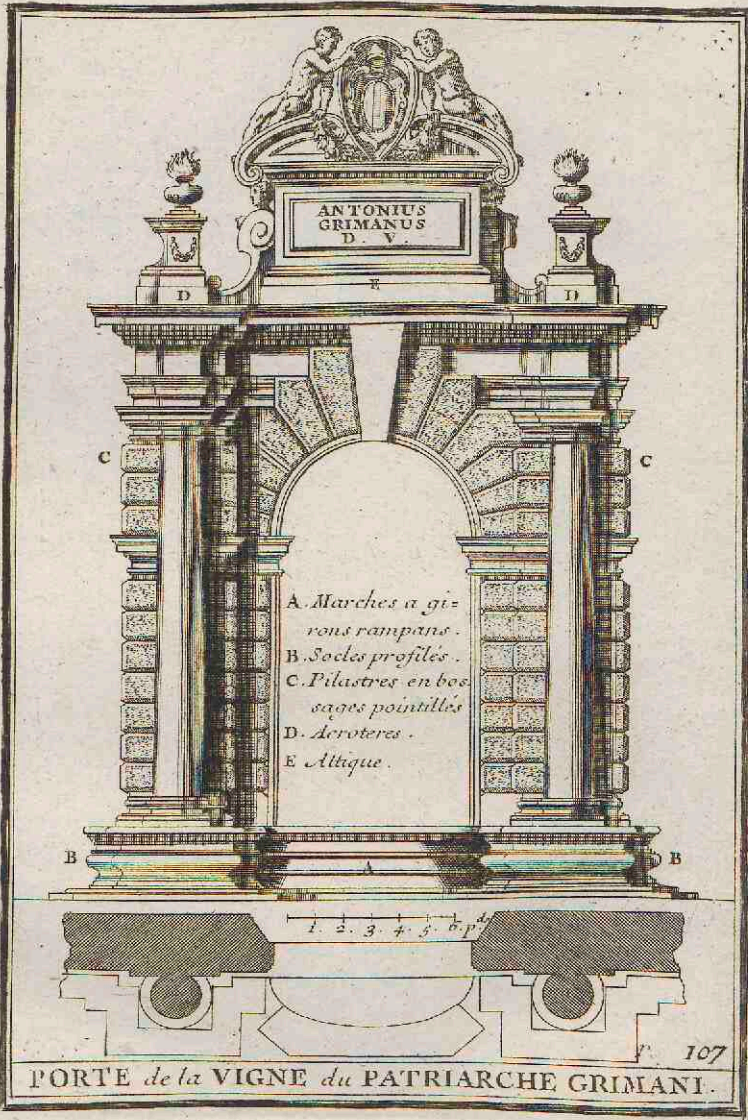 ANTONIUS
GRIMANUS
D. V.
D
E
D
C
C
A. Marches a gi=
rons rampans.
B. Socles profilés.
C. Pilastres en bos
sages pointillés
D. Acroteres.
E Attique.
B
A
B
1. 2. 3. 4. 5. 6. pds
P. 107
PORTE de la VIGNE du PATRIARCHE GRIMANI.